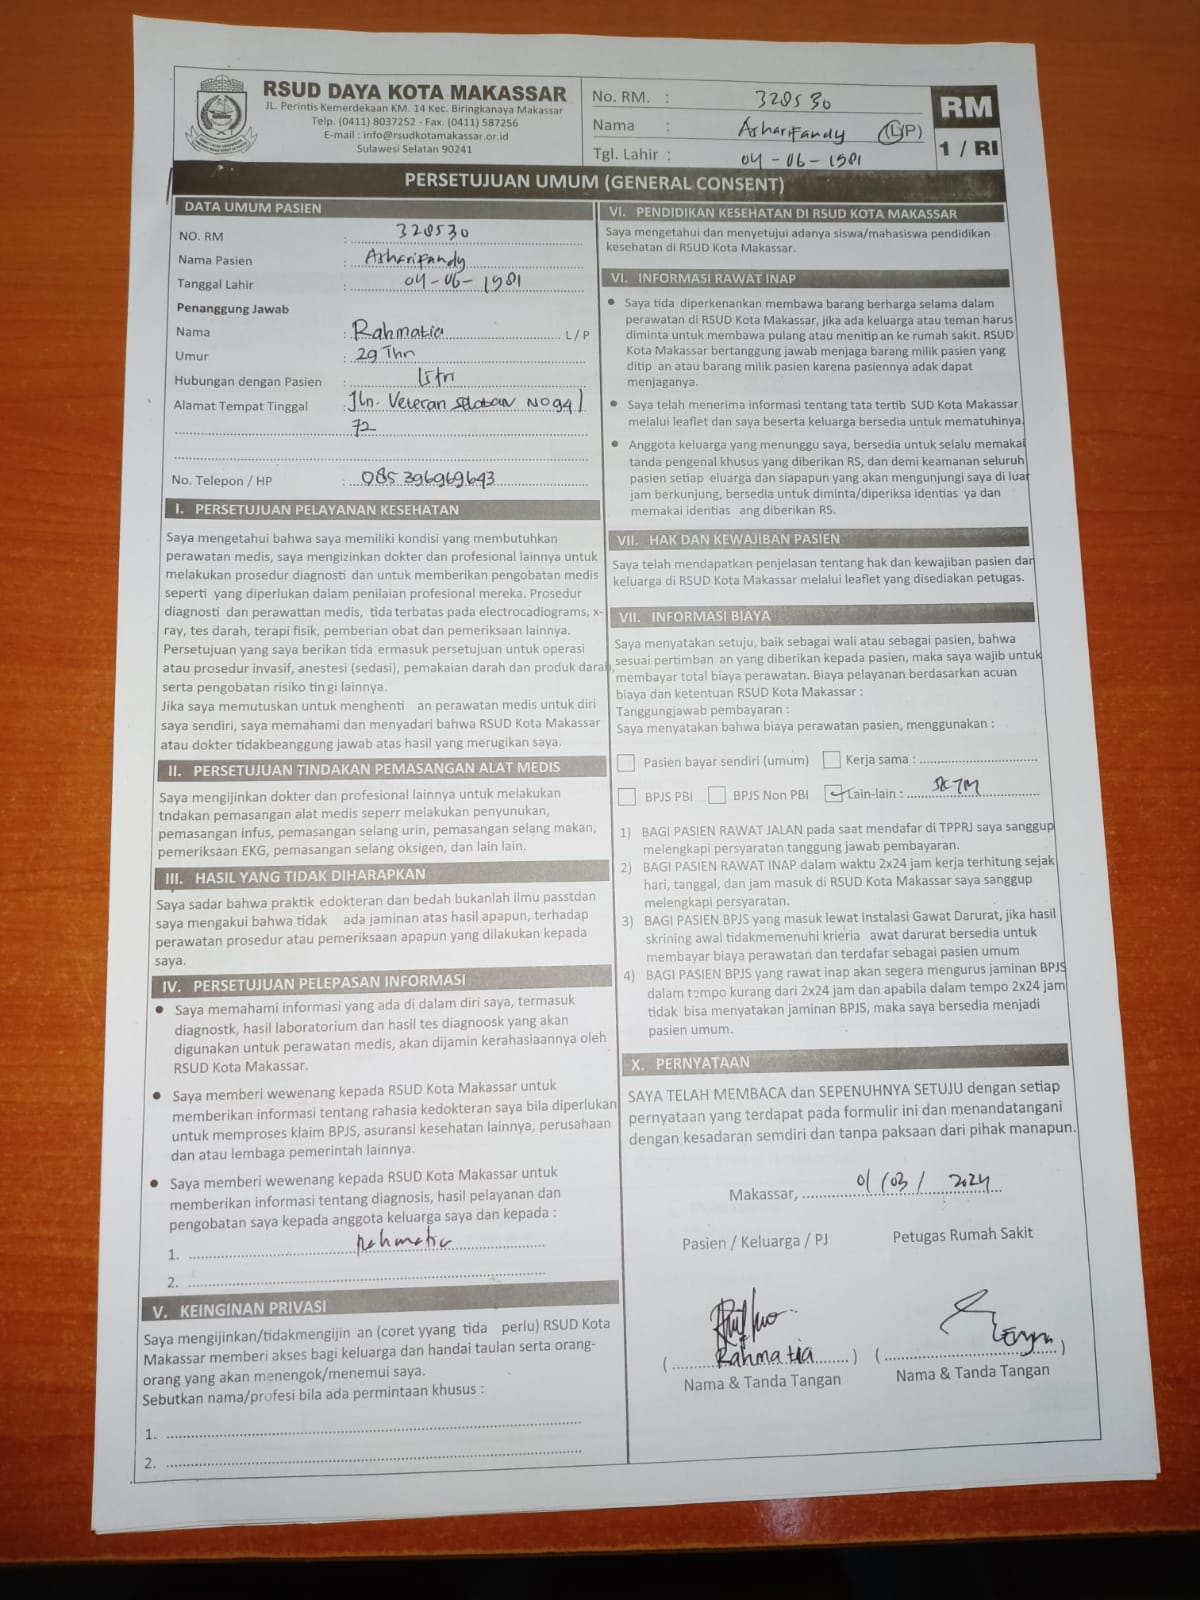 RSUD DAYA KOTA MAKASSAR
JL. Perintis Kemerdekaan KM. 14 Kec. Biringkanaya Makassar
Telp. (0411) 8037252 - Fax. (0411) 587256
E-mail : info@rsudkotamakassar.or.id
Sulawesi Selatan 90241
No. RM. : 328530
Nama : Asharifandy (L/P)
Tgl. Lahir : 04-06-1981
RM
1 / RI
PERSETUJUAN UMUM (GENERAL CONSENT)
DATA UMUM PASIEN
NO. RM : 328530
Nama Pasien : Asharifandy
Tanggal Lahir : 04-06-1981
Penanggung Jawab
Nama : Rahmatia L / P
Umur : 29 Thn
Hubungan dengan Pasien : Istri
Alamat Tempat Tinggal : Jln. Veteran selatan No 94/
72
No. Telepon / HP : 085 396969643
I. PERSETUJUAN PELAYANAN KESEHATAN
Saya mengetahui bahwa saya memiliki kondisi yang membutuhkan
perawatan medis, saya mengizinkan dokter dan profesional lainnya untuk
melakukan prosedur diagnosti dan untuk memberikan pengobatan medis
seperti yang diperlukan dalam penilaian profesional mereka. Prosedur
diagnosti dan perawattan medis, tida terbatas pada electrocadiograms, x-
ray, tes darah, terapi fisik, pemberian obat dan pemeriksaan lainnya.
Persetujuan yang saya berikan tida ermasuk persetujuan untuk operasi
atau prosedur invasif, anestesi (sedasi), pemakaian darah dan produk darah,
serta pengobatan risiko tin gi lainnya.
Jika saya memutuskan untuk menghenti an perawatan medis untuk diri
saya sendiri, saya memahami dan menyadari bahwa RSUD Kota Makassar
atau dokter tidakbeanggung jawab atas hasil yang merugikan saya.
II. PERSETUJUAN TINDAKAN PEMASANGAN ALAT MEDIS
Saya mengijinkan dokter dan profesional lainnya untuk melakukan
tndakan pemasangan alat medis seperr melakukan penyunukan,
pemasangan infus, pemasangan selang urin, pemasangan selang makan,
pemeriksaan EKG, pemasangan selang oksigen, dan lain lain.
III. HASIL YANG TIDAK DIHARAPKAN
Saya sadar bahwa praktik edokteran dan bedah bukanlah ilmu passtdan
saya mengakui bahwa tidak ada jaminan atas hasil apapun, terhadap
perawatan prosedur atau pemeriksaan apapun yang dilakukan kepada
saya.
IV. PERSETUJUAN PELEPASAN INFORMASI
• Saya memahami informasi yang ada di dalam diri saya, termasuk
diagnostk, hasil laboratorium dan hasil tes diagnoosk yang akan
digunakan untuk perawatan medis, akan dijamin kerahasiaannya oleh
RSUD Kota Makassar.
• Saya memberi wewenang kepada RSUD Kota Makassar untuk
memberikan informasi tentang rahasia kedokteran saya bila diperlukan
untuk memproses klaim BPJS, asuransi kesehatan lainnya, perusahaan
dan atau lembaga pemerintah lainnya.
• Saya memberi wewenang kepada RSUD Kota Makassar untuk
memberikan informasi tentang diagnosis, hasil pelayanan dan
pengobatan saya kepada anggota keluarga saya dan kepada :
1. Rahmatia
2.
V. KEINGINAN PRIVASI
Saya mengijinkan/tidakmengijin an (coret yyang tida perlu) RSUD Kota
Makassar memberi akses bagi keluarga dan handai taulan serta orang-
orang yang akan menengok/menemui saya.
Sebutkan nama/profesi bila ada permintaan khusus :
1.
2.
VI. PENDIDIKAN KESEHATAN DI RSUD KOTA MAKASSAR
Saya mengetahui dan menyetujui adanya siswa/mahasiswa pendidikan
kesehatan di RSUD Kota Makassar.
VI. INFORMASI RAWAT INAP
• Saya tida diperkenankan membawa barang berharga selama dalam
perawatan di RSUD Kota Makassar, jika ada keluarga atau teman harus
diminta untuk membawa pulang atau menitip an ke rumah sakit. RSUD
Kota Makassar bertanggung jawab menjaga barang milik pasien yang
ditip an atau barang milik pasien karena pasiennya adak dapat
menjaganya.
• Saya telah menerima informasi tentang tata tertib SUD Kota Makassar
melalui leaflet dan saya beserta keluarga bersedia untuk mematuhinya.
• Anggota keluarga yang menunggu saya, bersedia untuk selalu memakai
tanda pengenal khusus yang diberikan RS, dan demi keamanan seluruh
pasien setiap eluarga dan siapapun yang akan mengunjungi saya di luar
jam berkunjung, bersedia untuk diminta/diperiksa identias ya dan
memakai identias ang diberikan RS.
VII. HAK DAN KEWAJIBAN PASIEN
Saya telah mendapatkan penjelasan tentang hak dan kewajiban pasien dan
keluarga di RSUD Kota Makassar melalui leaflet yang disediakan petugas.
VII. INFORMASI BIAYA
Saya menyatakan setuju, baik sebagai wali atau sebagai pasien, bahwa
sesuai pertimban an yang diberikan kepada pasien, maka saya wajib untuk
membayar total biaya perawatan. Biaya pelayanan berdasarkan acuan
biaya dan ketentuan RSUD Kota Makassar :
Tanggungjawab pembayaran :
Saya menyatakan bahwa biaya perawatan pasien, menggunakan :
Pasien bayar sendiri (umum) Kerja sama :
BPJS PBI BPJS Non PBI Lain-lain : SKTM
1) BAGI PASIEN RAWAT JALAN pada saat mendafar di TPPRJ saya sanggup
melengkapi persyaratan tanggung jawab pembayaran.
2) BAGI PASIEN RAWAT INAP dalam waktu 2x24 jam kerja terhitung sejak
hari, tanggal, dan jam masuk di RSUD Kota Makassar saya sanggup
melengkapi persyaratan.
3) BAGI PASIEN BPJS yang masuk lewat Instalasi Gawat Darurat, jika hasil
skrining awal tidakmemenuhi krieria awat darurat bersedia untuk
membayar biaya perawatan dan terdafar sebagai pasien umum
4) BAGI PASIEN BPJS yang rawat inap akan segera mengurus jaminan BPJS
dalam tempo kurang dari 2x24 jam dan apabila dalam tempo 2x24 jam
tidak bisa menyatakan jaminan BPJS, maka saya bersedia menjadi
pasien umum.
X. PERNYATAAN
SAYA TELAH MEMBACA dan SEPENUHNYA SETUJU dengan setiap
pernyataan yang terdapat pada formulir ini dan menandatangani
dengan kesadaran semdiri dan tanpa paksaan dari pihak manapun.
Makassar, 01/03/2024
Pasien / Keluarga / PJ Petugas Rumah Sakit
(Rahmatia) ( )
Nama & Tanda Tangan Nama & Tanda Tangan